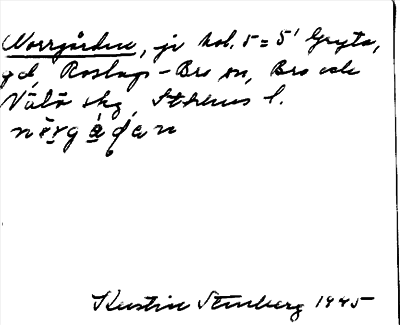 Norrgården, jr kol. 5=5¹ Gryta,
gd, Roslags-Bro sn, Bro och
Vätö skg, Sthlms l.
Kerstin Stenberg 1945